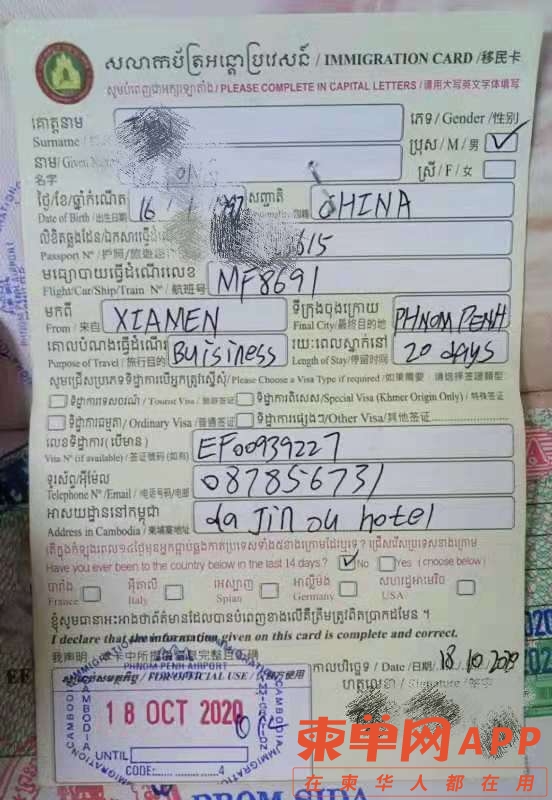 សលាកប័ត្រអន្តោប្រវេសន៍ / IMMIGRATION CARD /移民卡
សូមបំពេញជាអក្សរឡាតាំង / PLEASE COMPLETE IN CAPITAL LETTERS / 请用大写英文字体填写
គោត្តនាម
Surname /
ភេទ / Gender /性别
ប្រុស / M / 男
នាម/ Given Name
名字
ស្រី / F / 女
ថ្ងៃ/ខែ/ឆ្នាំកំណើត
Date of Birth /出生日期
16
សញ្ជាតិ
CHINA
លិខិតឆ្លងដែន/ឯកសារធ្វើដំណើរ
Passport Nº / 护照/旅游
615
មធ្យោបាយធ្វើដំណើរលេខ
Flight/Car/Ship/Train Nº / 航班号
MF8691
មកពី
From / 来自
XIAMEN
ទីក្រុងចុងក្រោយ
Final City/最终目的地
PHNOM PENH
គោលបំណងធ្វើដំណើរ
Purpose of Travel / 旅行目的
Buisiness
រយៈពេលស្នាក់នៅ
Length of Stay/停留时间
20 days
សូមជ្រើសប្រភេទទិដ្ឋាការបើអ្នកត្រូវស្នើសុំ/ Please Choose a Visa Type if required /如果需要 , 请选择签证类型:
ទិដ្ឋាការទេសចរណ៍ / Tourist Visa / 旅游签证
ទិដ្ឋាការពិសេស/ Special Visa (Khmer Origin Only) / 特殊签证
ទិដ្ឋាការធម្មតា / Ordinary Visa /普通签证
ទិដ្ឋាការផ្សេងៗ/Other Visa/其他签证
លេខទិដ្ឋាការ( បើមាន )
Visa Nº (if available) / 签证號码 (如有)
EF00939227
ទូរស័ព្ទ/អ៊ីម៉ែល
Telephone Nº /Email / 电话号码/电邮
087856731
អាសយដ្ឋាននៅកម្ពុជា
Address in Cambodia / 柬埔寨地址
da Jin ou hotel
Have you ever been to the country below in the last 14 days?
No
Yes
(choose below)
បារាំង
France
អ៊ីតាលី
Italy
អេស្ប៉ាញ
Spian
អាល្លឺម៉ង់
Germany
សហរដ្ឋអាមេរិច
ខ្ញុំសូមធានាអះអាងថាព័ត៌មានដែលបានបំពេញខាងលើគឺត្រឹមត្រូវពិតប្រាកដមែន ។
I declare that the information given on this card is complete and correct.
កាលបរិច្ឆេទ / Date / 日期/
18.10.20
ហត្ថលេខា / Signature /
PHNOM PENH AIRPORT
FOR OFFICIAL USE
18 OCT 2020
UNTIL
CODE:
4
CAMBODIA
IMMIGRATION
柬单网APP
在柬华人都在用